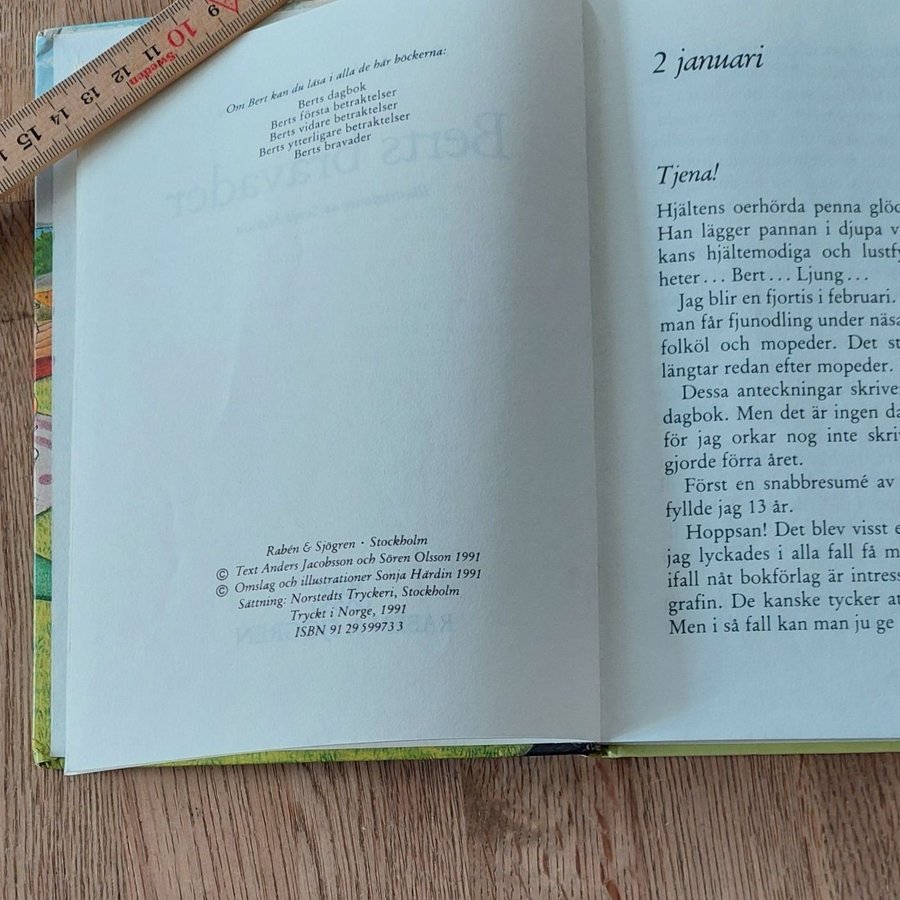 9
10
11
12
13
14
15
Sweden
Om Bert kan du läsa i alla de här böckerna:
Berts dagbok
Berts första betraktelser
Berts vidare betraktelser
Berts ytterligare betraktelser
Berts bravader
Berts bravader
Rabén & Sjögren · Stockholm
© Text Anders Jacobsson och Sören Olsson 1991
© Omslag och illustrationer Sonja Härdin 1991
Sättning: Norstedts Tryckeri, Stockholm
Tryckt i Norge, 1991
ISBN 91 29 59973 3
2 januari
Tjena!
Hjältens oerhörda penna glöd
Han lägger pannan i djupa v
kans hjältemodiga och lustfy
heter... Bert... Ljung...
Jag blir en fjortis i februari.
man får fjunodling under näsa
folköl och mopeder. Det st
längtar redan efter mopeder.
Dessa anteckningar skrive
dagbok. Men det är ingen da
för jag orkar nog inte skriv
gjorde förra året.
Först en snabbresumé av
fyllde jag 13 år.
Hoppsan! Det blev visst e
jag lyckades i alla fall få m
ifall nåt bokförlag är intress
grafin. De kanske tycker at
Men i så fall kan man ju ge